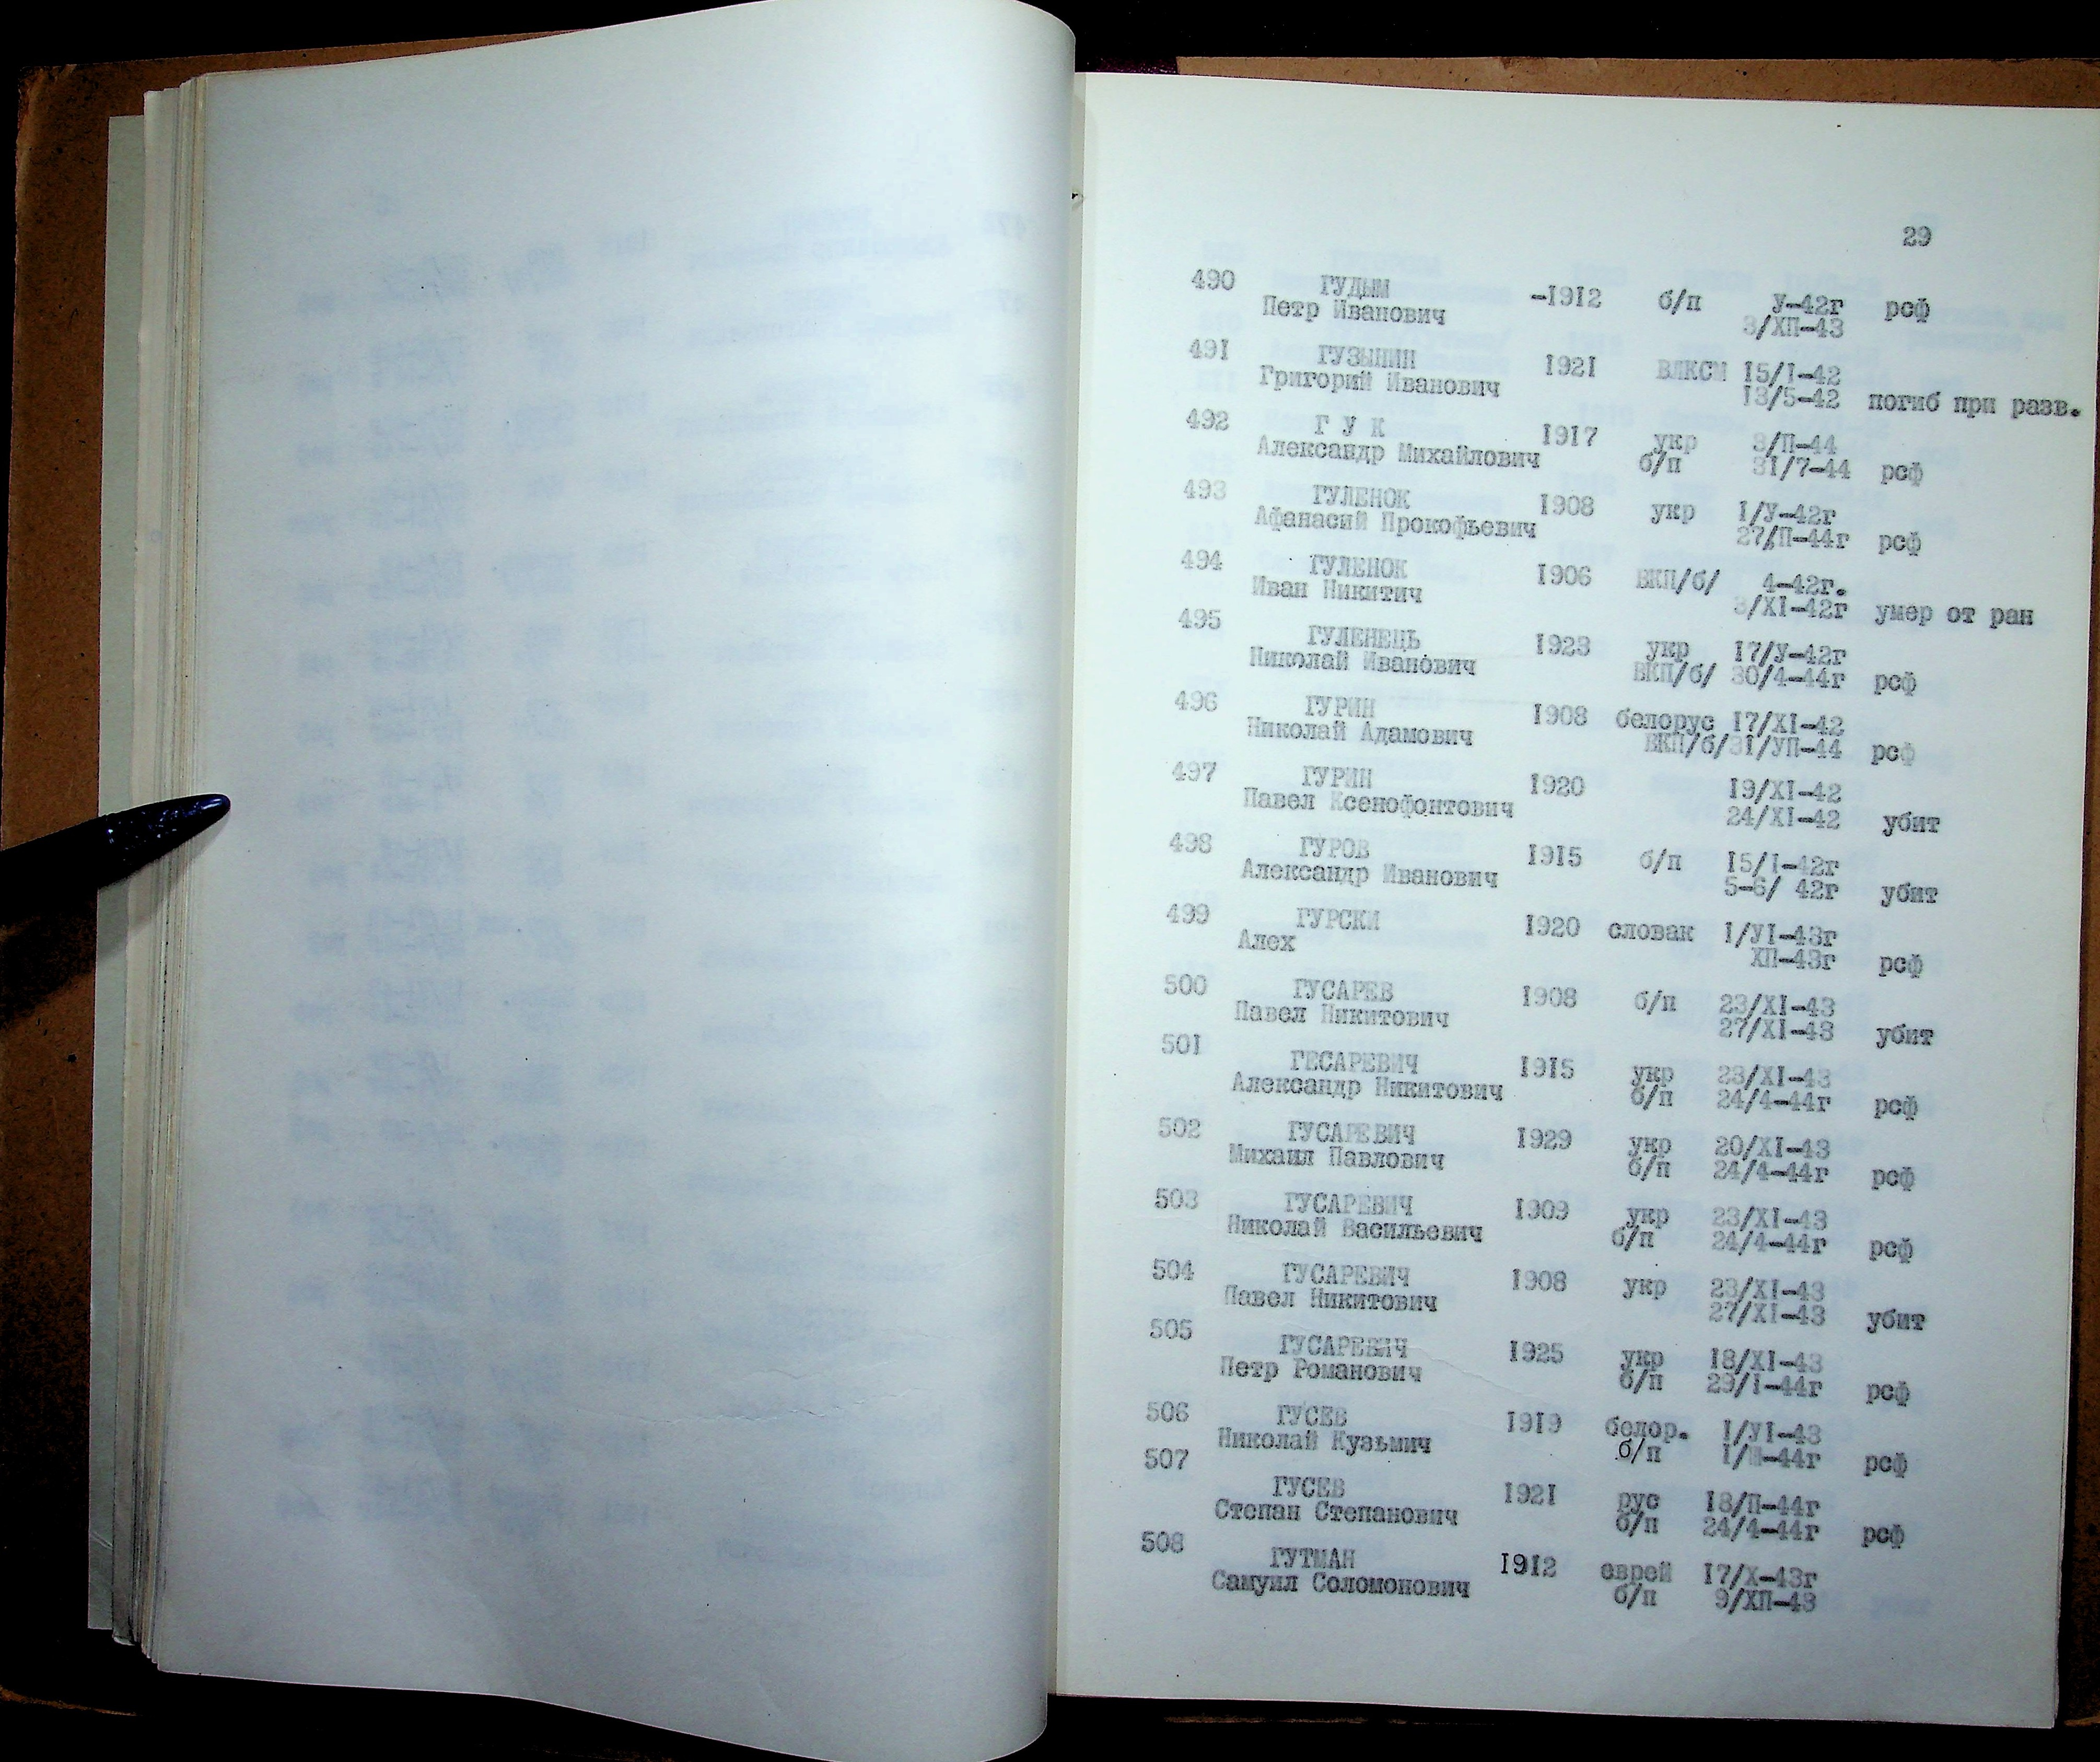 29
490 ГУДЫМ -1912 б/п У-42г рсф
Петр Иванович 3/ХП-43
491 ГУЗЫНИН 1921 ВЛКСМ I5/I-42
Григорий Иванович I3/5-42 погиб при разв.
492 Г У К 1917 укр 3/П-44
Александр Михайлович б/п 3I/7-44 рсф
493 ГУЛЕНОК 1908 укр I/У-42г
Афанасий Прокофьевич 27/П-44г рсф
494 ГУЛЕНОК 1906 ВКП/б/ 4-42г.
Иван Никитич 3/XI-42г умер от ран
495 ГУЛЕНЕЦЬ 1923 укр I7/У-42г
Николай Иванович ВКП/б/ 30/4-44г рсф
496 ГУРИН 1908 белорус I7/XI-42
Николай Адамович ВКП/б/3I/УП-44 рсф
497 ГУРИН 1920 I9/XI-42
Павел Ксенофонтович 24/XI-42 убит
498 ГУРОВ 1915 б/п I5/I-42г
Александр Иванович 5-6/ 42г убит
499 ГУРСКИ 1920 словак I/УI-43г
Алех ХП-43г рсф
500 ГУСАРЕВ 1908 б/п 23/XI-43
Павел Никитович 27/XI-43 убит
501 ГЕСАРЕВИЧ 1915 укр 23/XI-43
Александр Никитович б/п 24/4-44г рсф
502 ГУСАРЕВИЧ 1929 укр 20/XI-43
Михаил Павлович б/п 24/4-44г рсф
503 ГУСАРЕВИЧ 1909 укр 23/XI-43
Николай Васильевич б/п 24/4-44г рсф
504 ГУСАРЕВИЧ 1908 укр 23/XI-43
Павел Никитович 27/XI-43 убит
505 ГУСАРЕВИЧ 1925 укр I8/XI-43
Петр Романович б/п 29/I-44г рсф
506 ГУСЕВ 1919 белор. I/УI-43
Николай Кузьмич б/п рсф
507 ГУСЕВ 1921 рус I8/П-44г
Степан Степанович б/п 24/4-44г рсф
508 ГУТМАН 1912 еврей I7/X-43г
Самуил Соломонович б/п 9/ХП-43